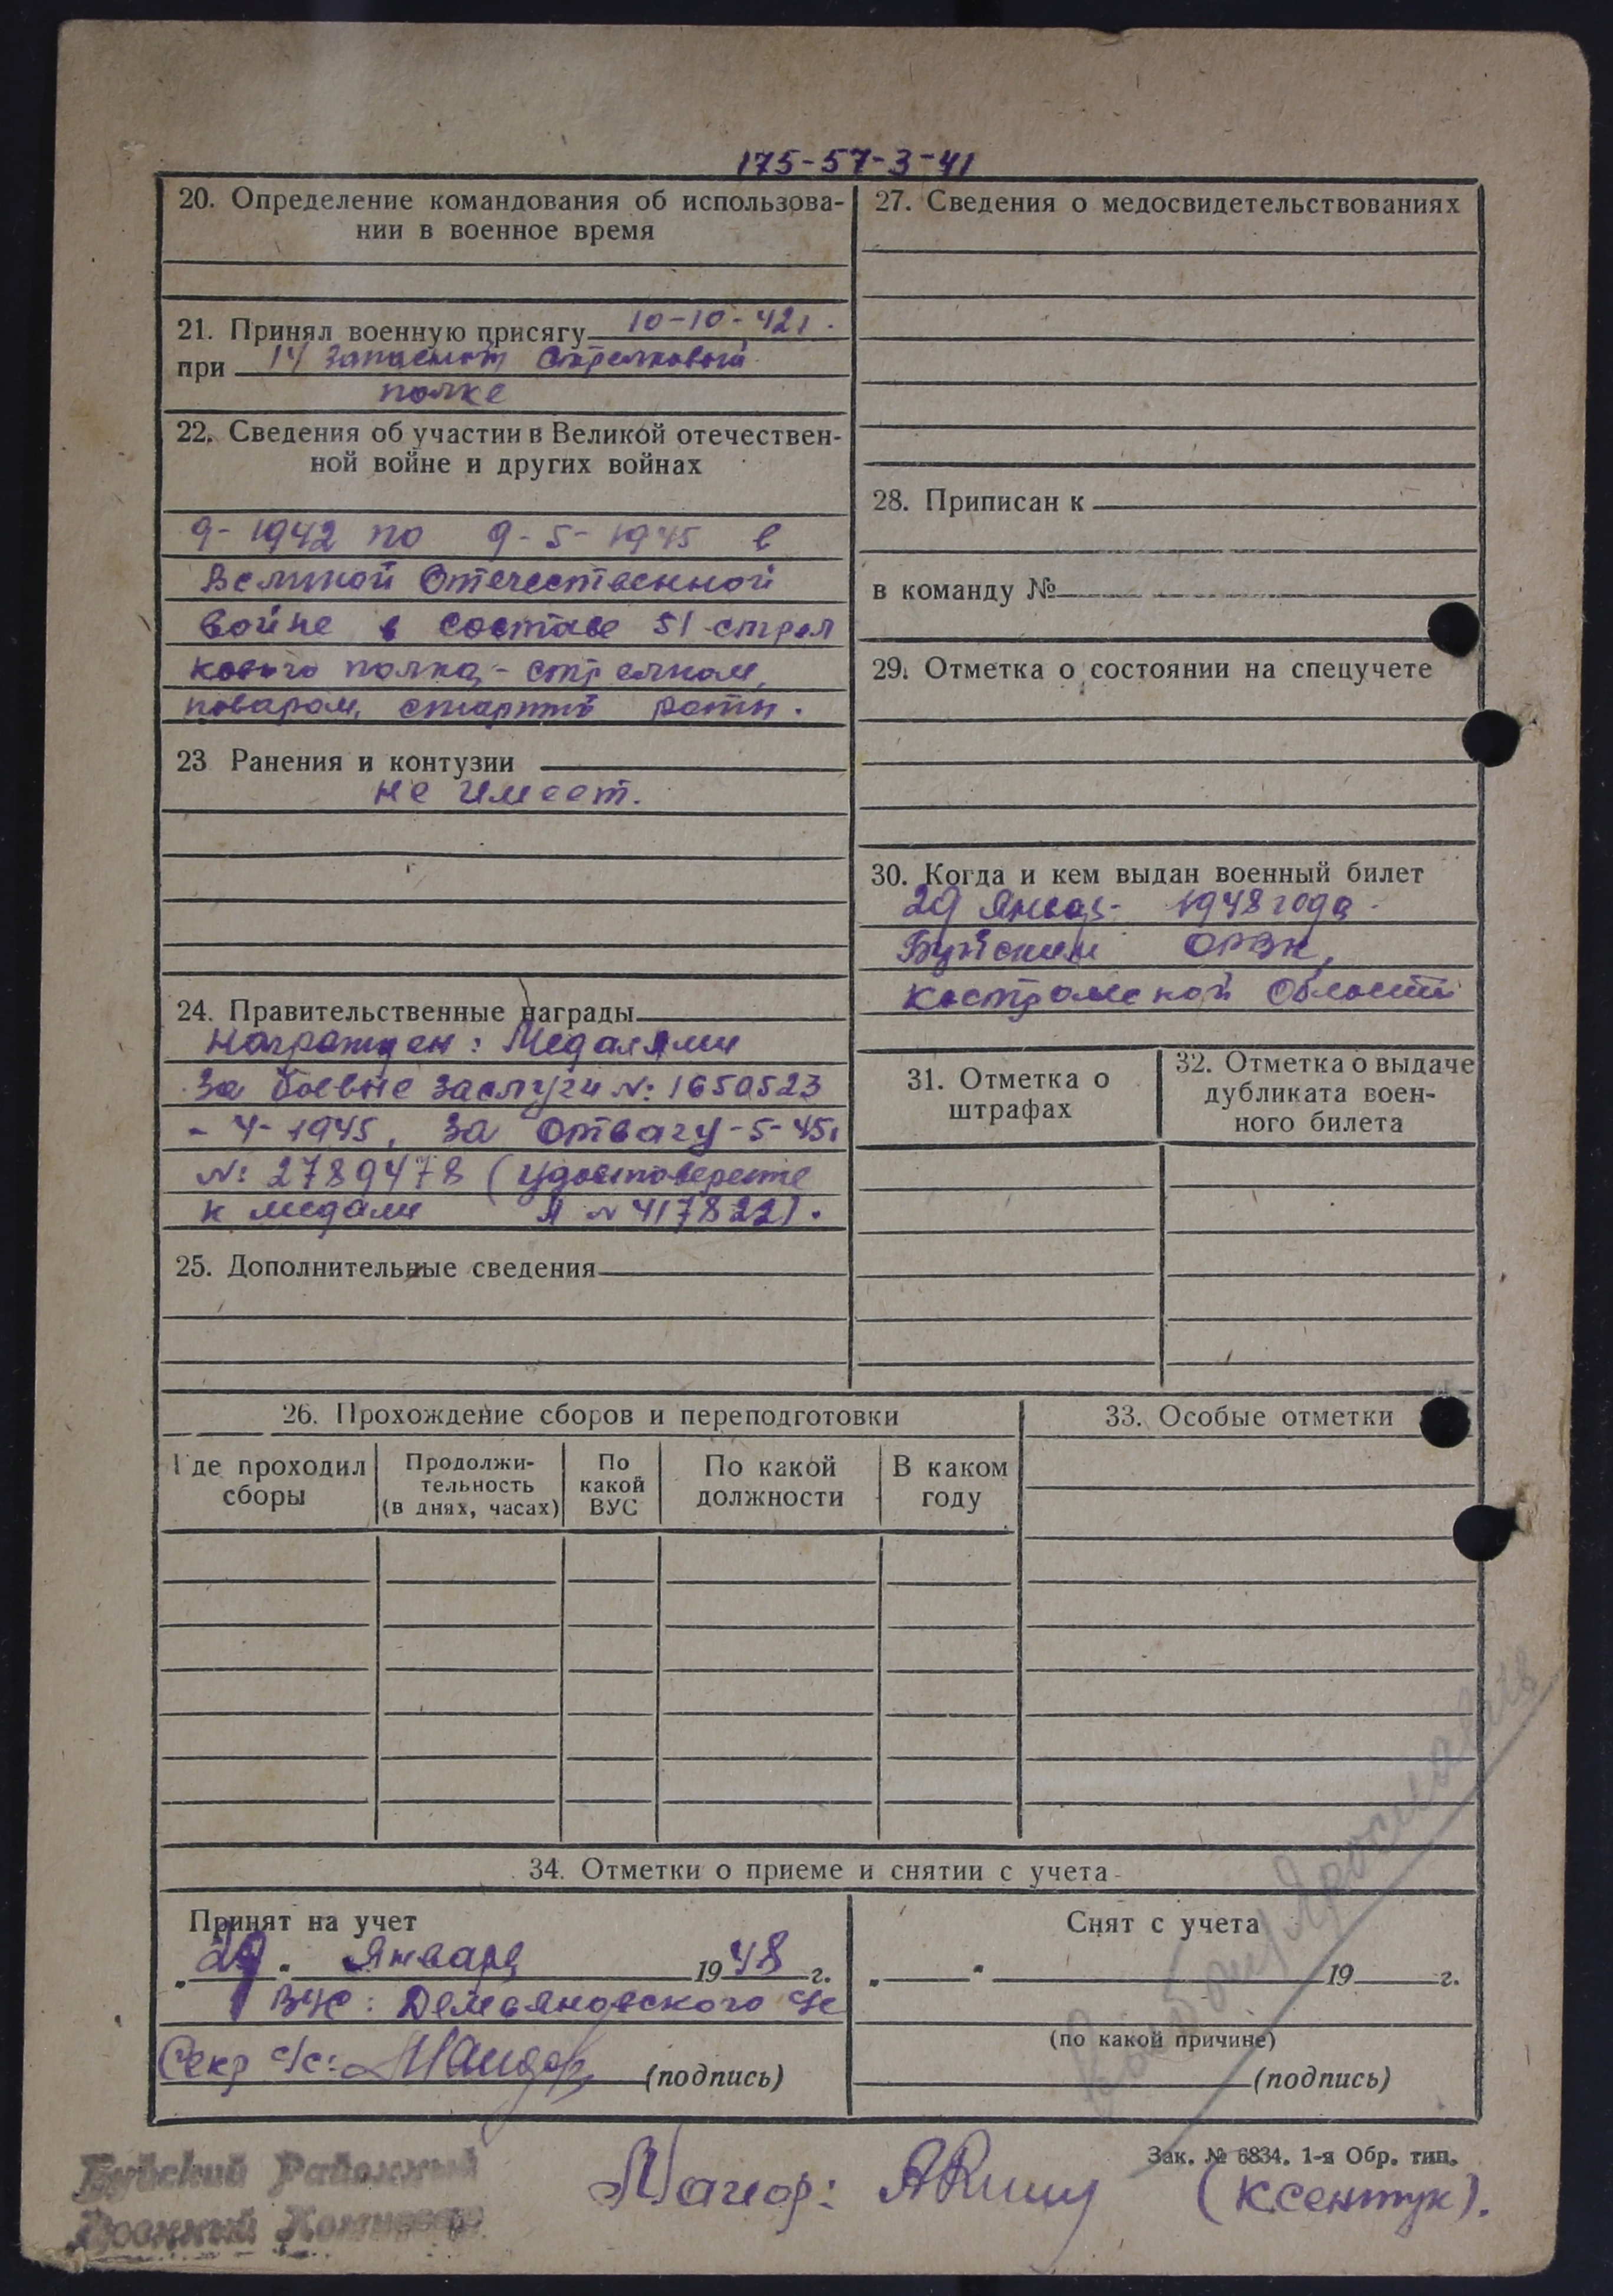 175-57-3-41
20. Определение командования об использова-
нии в военное время
21. Принял военную присягу 10-10-42г.
при 14 Запасном Стрелковом
полке
22. Сведения об участии в Великой отечествен-
ной войне и других войнах
9-1942 по 9-5-1945 в
Великой Отечественной
войне в составе 51 стрел
кового полка - стрелком,
поваром, старшиной роты.
23 Ранения и контузии
не имеет.
24. Правительственные награды
Награжден: Медалями
За боевые заслуги №: 1650523
- 4-1945, За Отвагу -5-45г
№: 2789478 (удостоверение
к медали А № 417822).
25. Дополнительные сведения
27. Сведения о медосвидетельствованиях
28. Приписан к
в команду №
29. Отметка о состоянии на спецучете
30. Когда и кем выдан военный билет
29 Январ- 1948 года.
Буйским ОРВК,
Костромской Области
31. Отметка о
штрафах
32. Отметка о выдаче
дубликата воен-
ного билета
26. Прохождение сборов и переподготовки
Где проходил
сборы
Продолжи-
тельность
(в днях, часах)
По
какой
ВУС
По какой
должности
В каком
году
33. Особые отметки
34. Отметки о приеме и снятии с учета
Принят на учет
„29" Января 1948 г.
ВУС: Демьяновского с/с
Секр с/с: (подпись)
Снят с учета
„ " 19 г.
(по какой причине)
(подпись)
Зак. № 6834. 1-я Обр. тип.
Буйский Районный
Военный Комиссар
Майор: (Ксентук).